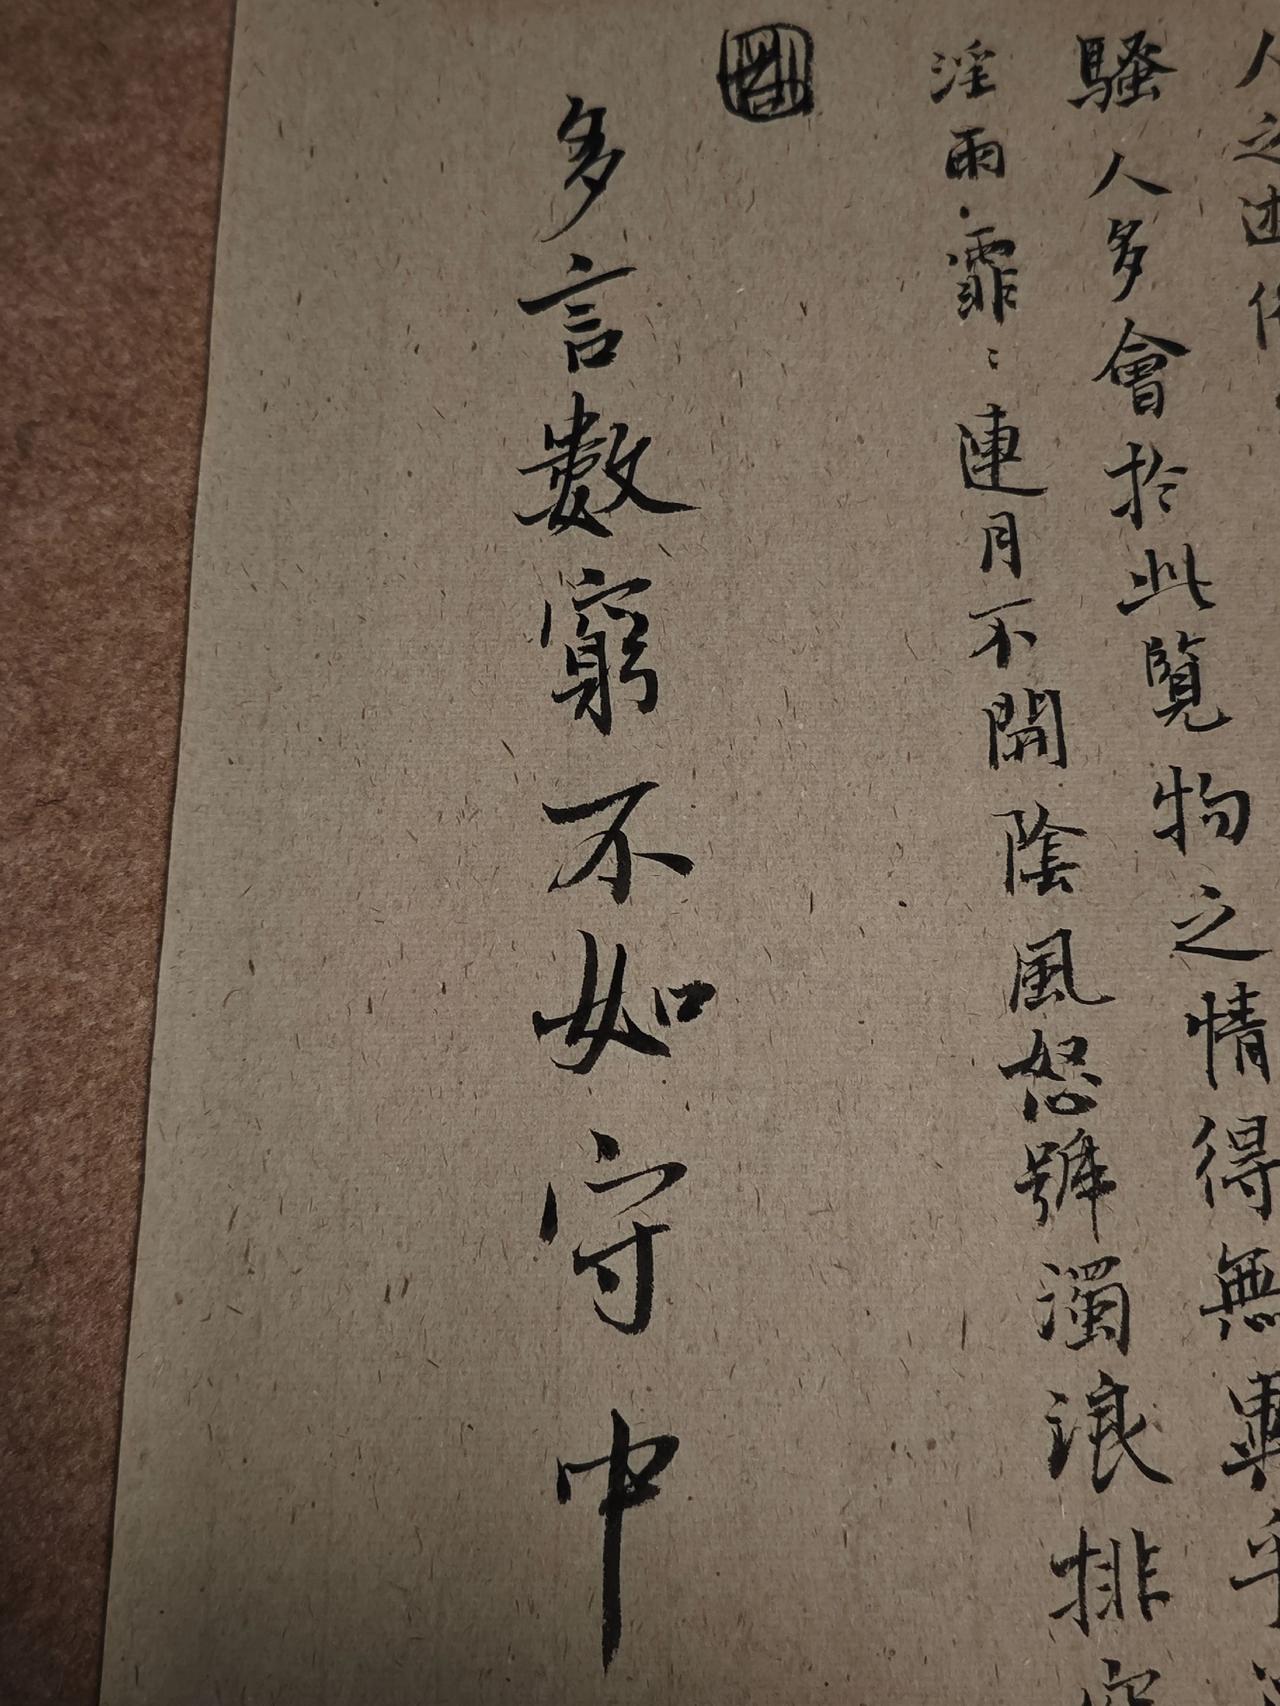 人之述作
騷人多會於此覽物之情得無異乎
淫雨霏〻連月不開陰風怒號濁浪排空
多言數窮不如守中